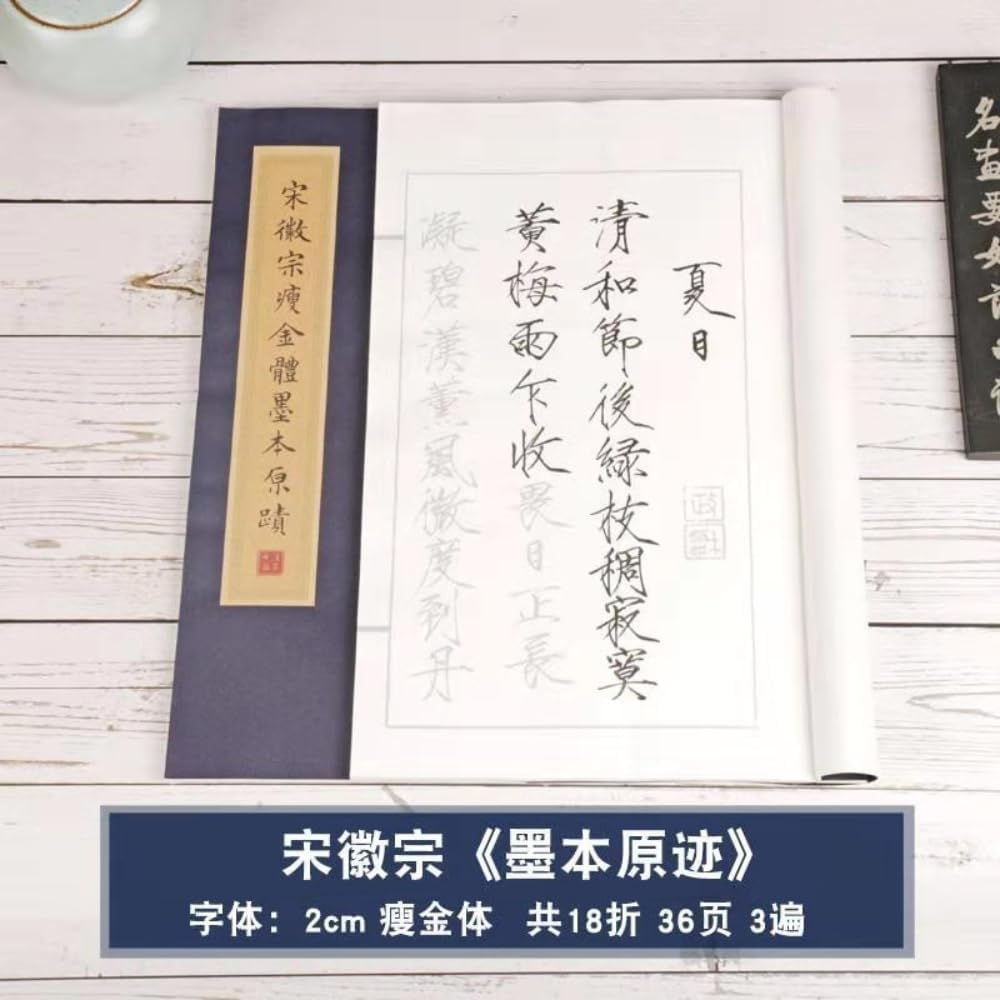 宋徽宗瘦金體墨本原蹟
夏日
清和節後綠枝稠寂寞
黃梅雨乍收畏日正長
凝碧漢薰風微度到丹
名畫要如詩句
宋徽宗《墨本原迹》
字体：2cm 瘦金体 共18折 36页 3遍